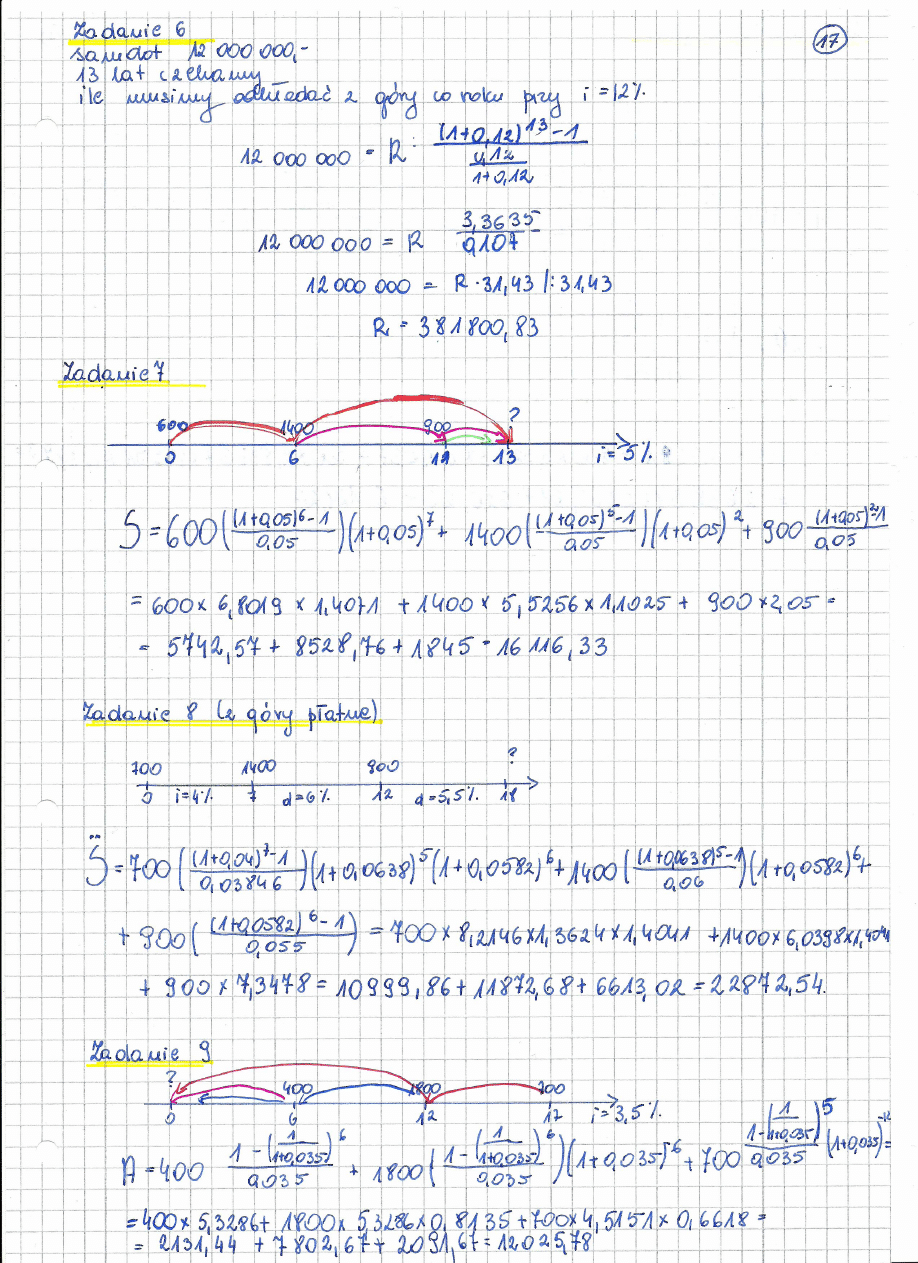 17
Zadanie 6
samolot 12 000 000,-
13 lat czekamy
ile musimy odkładać z góry co roku przy i = 12%
12 000 000 = R · \frac{(1+0,12)^{13} - 1}{\frac{0,12}{1+0,12}}
12 000 000 = R \frac{3,3635}{0,107}
12 000 000 = R · 31,43 /: 31,43
R = 381800,83
Zadanie 7
600 1400 900 ?
0 6 11 13 i = 5%
S = 600 (\frac{(1+0,05)^6 - 1}{0,05})(1+0,05)^7 + 1400 (\frac{(1+0,05)^5 - 1}{0,05})(1+0,05)^2 + 900 \frac{(1+0,05)^2-1}{0,05}
= 600 × 6,8019 × 1,4071 + 1400 × 5,5256 × 1,1025 + 900 × 2,05 =
= 5742,57 + 8528,76 + 1845 = 16 116,33
Zadanie 8 (z góry płatne)
700 1400 900 ?
0 i=4% 7 d=6% 12 d=5,5% 18
S̈ = 700 (\frac{(1+0,04)^7 - 1}{0,03846})(1+0,0638)^5 (1+0,0582)^6 + 1400 (\frac{(1+0,0638)^5 - 1}{0,06})(1+0,0582)^6 +
+ 900 (\frac{(1+0,0582)^6 - 1}{0,055}) = 700 × 8,2146 × 1,3624 × 1,4041 + 1400 × 6,0398 × 1,4041
+ 900 × 7,3478 = 10999,86 + 11872,68 + 6613,02 = 22872,54.
Zadanie 9
? 400 1800 700
0 6 12 17 i = 3,5%
A = 400 \frac{1 - (\frac{1}{1+0,035})^6}{0,035} + 1800 (\frac{1 - (\frac{1}{1+0,035})^6}{0,035})(1+0,035)^{-6} + 700 \frac{1 - (\frac{1}{1+0,035})^5}{0,035} (1+0,035)^{-12} =
= 400 × 5,3286 + 1800 × 5,3286 × 0,8135 + 700 × 4,5151 × 0,6618 =
= 2131,44 + 7802,67 + 2091,67 = 12025,78